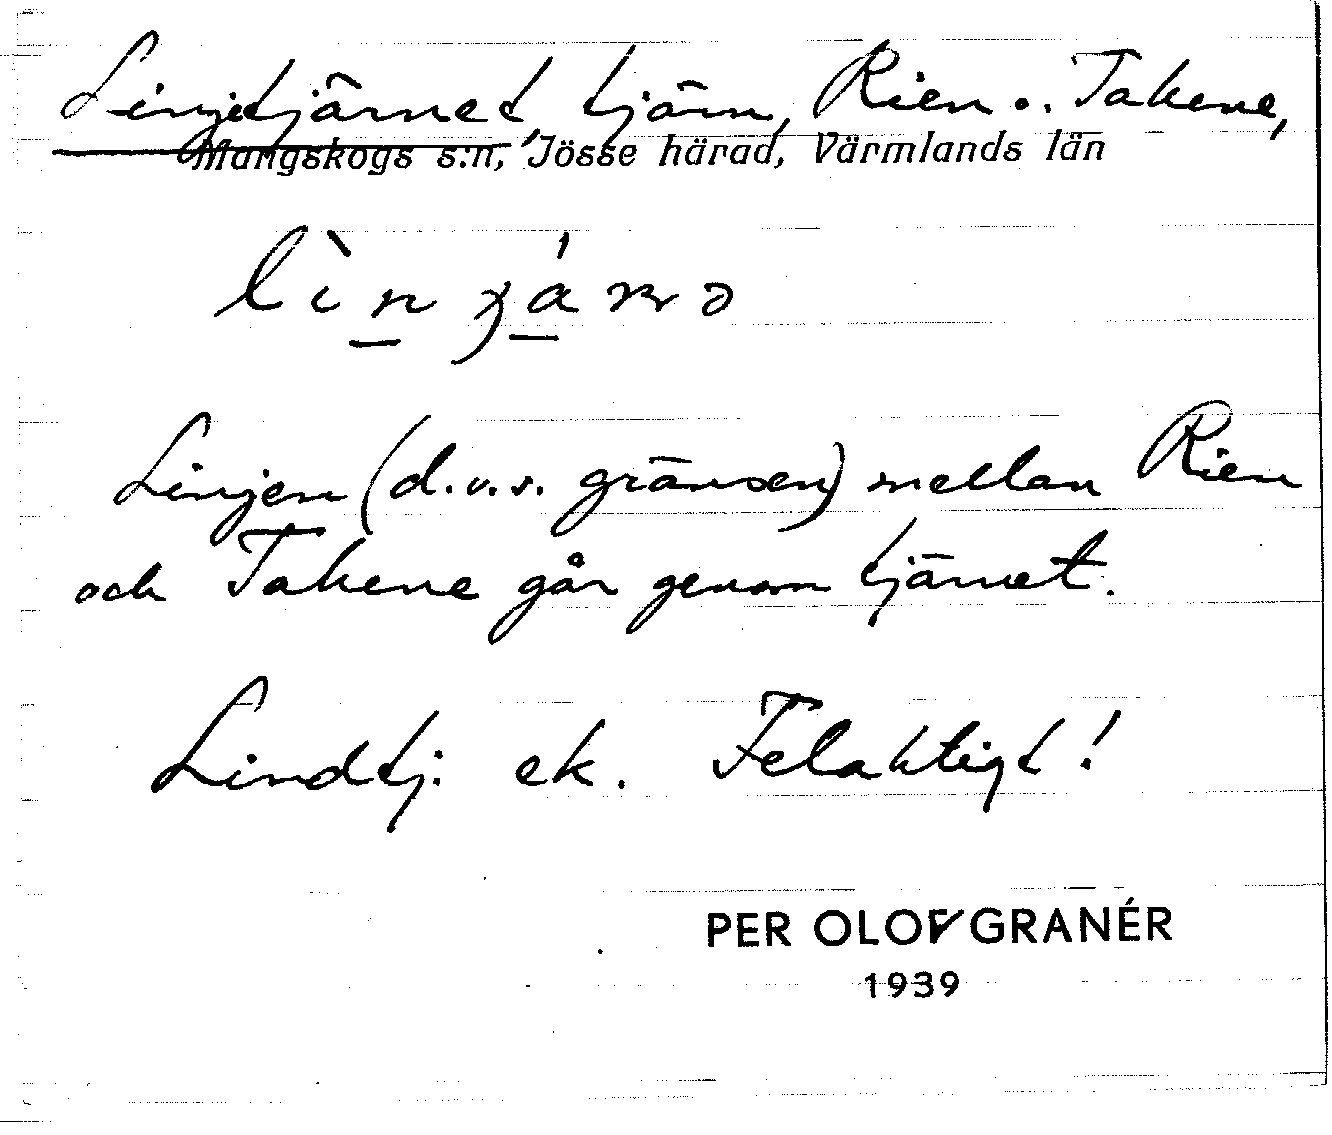 Linjetjärnet tjärn, Rien o. Takene,
Mangskogs s:n, Jösse härad, Värmlands län
Linjen (d.v.s. gränsen) mellan Rien
och Takene går genom tjärnet.
Lindtj: ek. Felaktigt!
PER OLOV GRANÉR
1939